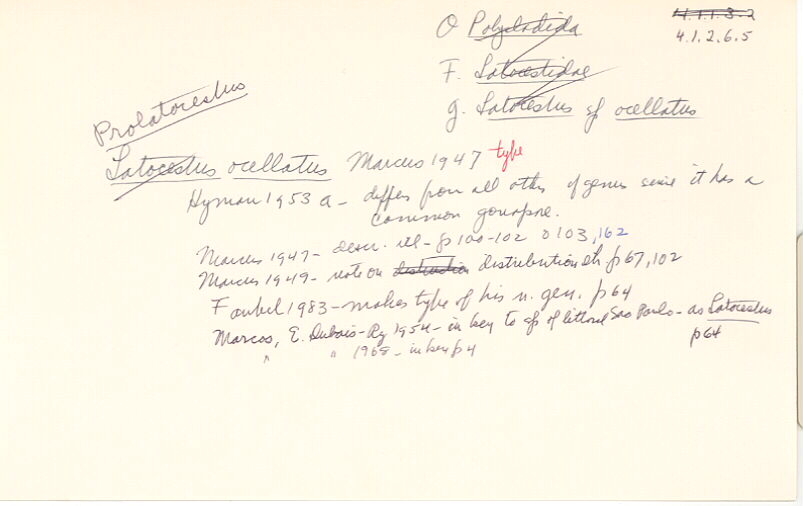 O Polycladida
4.1.1.3.2
4.1.2.6.5
F. Latocestidae
g. Latocestus sp ocellatus
Prolatocestus
Latocestus ocellatus Marcus 1947 type
Hyman 1953 a - differs from all others of genus since it has a
common gonopore.
Marcus 1947 - descr. ill - p 100-102 0103, 162
Marcus 1949 - note on distribution distribution p 67, 102
Faubel 1983 - makes type of his n. gen. p 64
Marcos, E. Dubois-Ry 1954 - in key to sp of littoral Sao Paulo - as Latocestus
p 64
" " 1968 - in key p 4